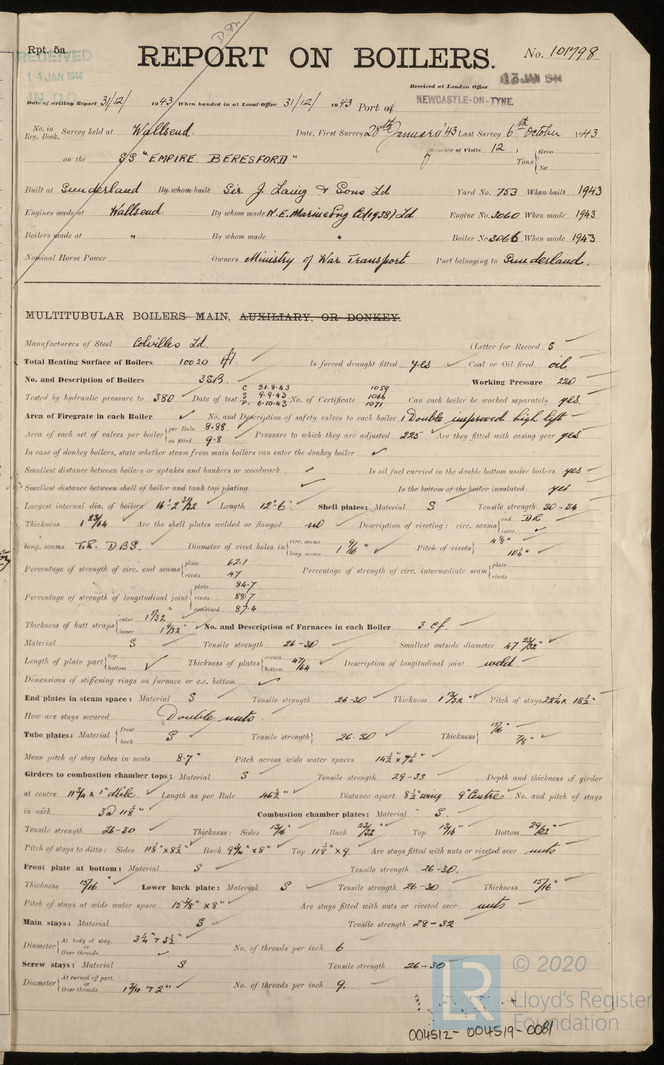 Rpt. 5a.
RECEIVED
14 JAN 1944
IN D.O.
D.M.
REPORT ON BOILERS.
No. 101798
Received at London Office
13 JAN 1944
Date of writing Report 31/12/ 1943 When handed in at Local Office 31/12/ 1943 Port of NEWCASTLE-ON-TYNE.
No. in Reg. Book. Survey held at Wallsend Date, First Survey 28th January '43 Last Survey 6th October 1943
Number of Visits 12
on the SS "EMPIRE BERESFORD" Tons Gross Net
Built at Sunderland By whom built Sir J. Laing & Sons Ld Yard No. 753 When built 1943
Engines made at Wallsend By whom made N.E. Marine Eng Co (1938) Ld Engine No. 3060 When made 1943
Boilers made at " By whom made " Boiler No. 3066 When made 1943
Nominal Horse Power Owners Ministry of War Transport Port belonging to Sunderland.
MULTITUBULAR BOILERS MAIN, AUXILIARY, OR DONKEY.
Manufacturers of Steel Colvilles Ld (Letter for Record S.
Total Heating Surface of Boilers 10020 Is forced draught fitted yes Coal or Oil fired oil
No. and Description of Boilers 3 SB. Working Pressure 220
Tested by hydraulic pressure to 380 Date of test C 31.8.43 S 9.9.43 P 6.10.43 No. of Certificate 1059 1066 1071 Can each boiler be worked separately yes
Area of Firegrate in each Boiler No. and Description of safety valves to each boiler 1 Double improved high lift
Area of each set of valves per boiler per Rule 8.88 as fitted 9.8 Pressure to which they are adjusted 225 Are they fitted with easing gear yes
In case of donkey boilers, state whether steam from main boilers can enter the donkey boiler
Smallest distance between boilers or uptakes and bunkers or woodwork Is oil fuel carried in the double bottom under boilers yes
Smallest distance between shell of boiler and tank top plating Is the bottom of the boiler insulated yes
Largest internal dia. of boilers Length 12'-6" Shell plates: Material S Tensile strength 30-34
Thickness 1 23/64 Are the shell plates welded or flanged no Description of riveting: circ. seams end DR inter.
long. seams T.R. D.B.S. Diameter of rivet holes in circ. seams long. seams 1 9/16" Pitch of rivets
Percentage of strength of circ. end seams plate 62.1 rivets 47 Percentage of strength of circ. intermediate seam plate rivets
Percentage of strength of longitudinal joint plate 84.7 rivets 88.7 combined 87.4
Thickness of butt straps outer 1 1/32" inner No. and Description of Furnaces in each Boiler 3 cf.
Material S Tensile strength 26-30 Smallest outside diameter 47 23/32"
Length of plain part top bottom Thickness of plates crown bottom 47/64 Description of longitudinal joint weld
Dimensions of stiffening rings on furnace or c.c. bottom
End plates in steam space: Material S Tensile strength 26-30 Thickness Pitch of stays
How are stays secured Double nuts
Tube plates: Material front back S Tensile strength 26-30 Thickness 15/16" 7/8"
Mean pitch of stay tubes in nests 8.7" Pitch across wide water spaces
Girders to combustion chamber tops: Material S Tensile strength 29-33 Depth and thickness of girder
at centre Length as per Rule 46 1/2" Distance apart No. and pitch of stays
in each 3 @ 11 1/8" Combustion chamber plates: Material S.
Tensile strength 26-30 Thickness: Sides 13/16 Back 23/32 Top 13/16 Bottom 29/32
Pitch of stays to ditto: Sides 11 1/8" x 8 1/2" Back Top 11 1/8 x 9 Are stays fitted with nuts or riveted over nuts
Front plate at bottom: Material S Tensile strength 26-30.
Thickness 15/16 Lower back plate: Material S Tensile strength 26-30 Thickness 15/16"
Pitch of stays at wide water space Are stays fitted with nuts or riveted over nuts
Main stays: Material S Tensile strength 28-32
Diameter At body of stay, or Over threads No. of threads per inch 6
Screw stays: Material S Tensile strength 26-30
Diameter At turned off part, or Over threads 1 3/4 & 2" No. of threads per inch 9.
© 2020
LR
Lloyd's Register
Foundation
004512-004519-0081